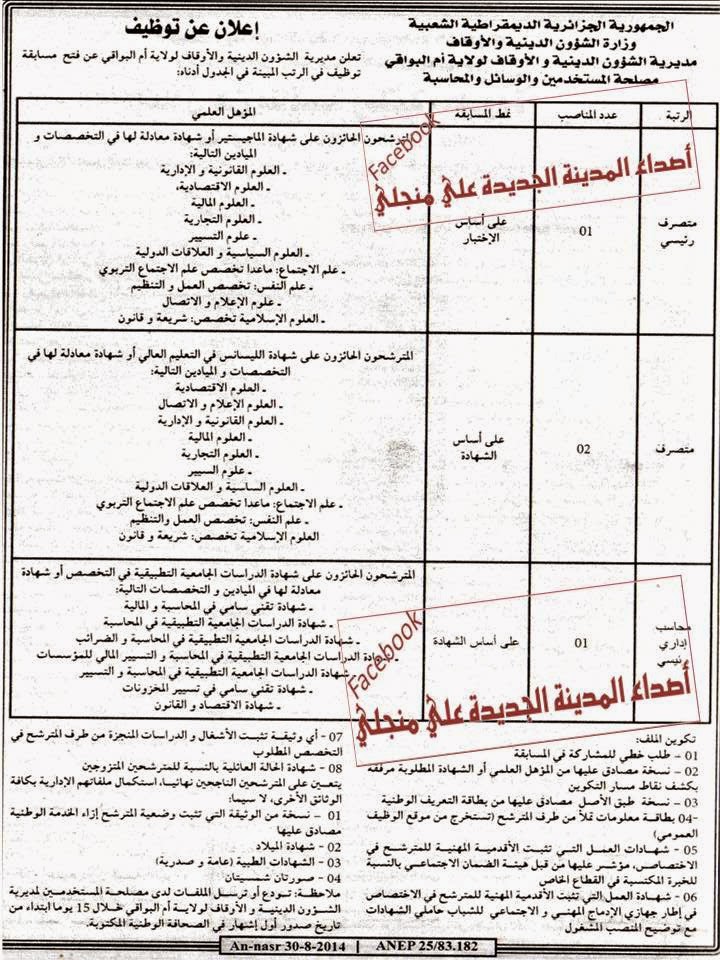 الجمهورية الجزائرية الديمقراطية الشعبية
وزارة الشؤون الدينية والأوقاف
مديرية الشؤون الدينية و الأوقاف لولاية أم البواقي
مصلحة المستخدمين والوسائل والمحاسبة
إعلان عن توظيف
تعلن مديرية الشؤون الدينية والأوقاف لولاية أم البواقي عن فتح مسابقة
توظيف في الرتب المبينة في الجدول أدناه:
الرتبة
عدد المناصب
نمط المسابقة
المؤهل العلمي
متصرف
رئيسي
01
على أساس
الإختبار
المترشحون الحائزون على شهادة الماجيستير أو شهادة معادلة لها في التخصصات و
الميادين التالية:
ـ العلوم القانونية و الإدارية
ـ العلوم الاقتصادية،
ـ العلوم المالية
ـ العلوم التجارية
ـ علوم التسيير
ـ العلوم السياسية و العلاقات الدولية
ـ علم الاجتماع: ماعدا تخصص علم الاجتماع التربوي
ـ علم النفس: تخصص العمل و التنظيم
ـ علوم الإعلام و الاتصال
ـ العلوم الإسلامية تخصص: شريعة و قانون
متصرف
02
على أساس
الشهادة
المترشحون الحائزون على شهادة الليسانس في التعليم العالي أو شهادة معادلة لها في
التخصصات و الميادين التالية:
ـ العلوم الاقتصادية
ـ العلوم الإعلام و الاتصال
ـ العلوم القانونية و الإدارية
ـ العلوم المالية
ـ العلوم التجارية
ـ علوم السيير
ـ العلوم الساسية و العلاقات الدولية
ـ علم الاجتماع: ماعدا تخصص علم الاجتماع التربوي
ـ علم النفس: تخصص العمل والتنظيم
العلوم الإسلامية تخصص: شريعة و قانون
محاسب
إداري
رئيسي
01
على أساس الشهادة
المترشحون الحائزون على شهادة الدراسات الجامعية التطبيقية في التخصص أو شهادة
معادلة لها في الميادين و التخصصات التالية:
ـ شهادة تقني سامي في المحاسبة و المالية
ـ شهادة الدراسات الجامعية التطبيقية في المحاسبة
ـ شهادة الدراسات الجامعية التطبيقية في المحاسبة و الضرائب
ـ شهادة الدراسات الجامعية التطبيقية في المحاسبة و التسيير المالي للمؤسسات
ـ شهادة الدراسات الجامعية التطبيقية في المحاسبة و التسيير
ـ شهادة تقني سامي في تسيير المخزونات
ـ شهادة الاقتصاد و القانون
Facebook
أصداء المدينة الجديدة علي منجلي
Facebook
أصداء المدينة الجديدة علي منجلي
تكوين الملف:
01 – طلب خطي للمشاركة في المسابقة
02 – نسخة مصادق عليها من المؤهل العلمي أو الشهادة المطلوبة مرفقة
بكشف نقاط مسار التكوين
03 – نسخة طبق الأصل مصادق عليها من بطاقة التعريف الوطنية
04- بطاقة معلومات تملأ من طرف المترشح (تستخرج من موقع الوظيف
العمومي)
05 – شهادات العمل التي تثبت الأقدمية المهنية للمترشح في
الاختصاص، مؤشر عليها من قبل هيئة الضمان الاجتماعي بالنسبة
للخبرة المكتسبة في القطاع الخاص
06 – شهادة العمل التي تثبت الأقدمية المهنية للمترشح في الاختصاص
في إطار جهازي الإدماج المهني و الاجتماعي للشباب حاملي الشهادات
مع توضيح المنصب المشغول
07 - أي وثيقة تثبت الأشغال و الدراسات المنجزة من طرف المترشح في
التخصص المطلوب
08 – شهادة الحالة العائلية بالنسبة للمترشحين المتزوجين
يتعين على المترشحين الناجحين نهائيا، استكمال ملفاتهم الإدارية بكافة
الوثائق الأخرى، لا سيما:
01 – نسخة من الوثيقة التي تثبت وضعية المترشح إزاء الخدمة الوطنية
مصادق عليها
02 – شهادة الميلاد
03 – الشهادات الطبية (عامة و صدرية)
04 – صورتان شمسيتان
ملاحظة: تودع أو ترسل الملفات لدى مصلحة المستخدمين لمديرية
الشؤون الدينية و الأوقاف لولاية أم البواقي خلال 15 يوما ابتداء من
تاريخ صدور أول إشهار في الصحافة الوطنية المكتوبة.
An-nasr 30-8-2014 | ANEP 25/83.182